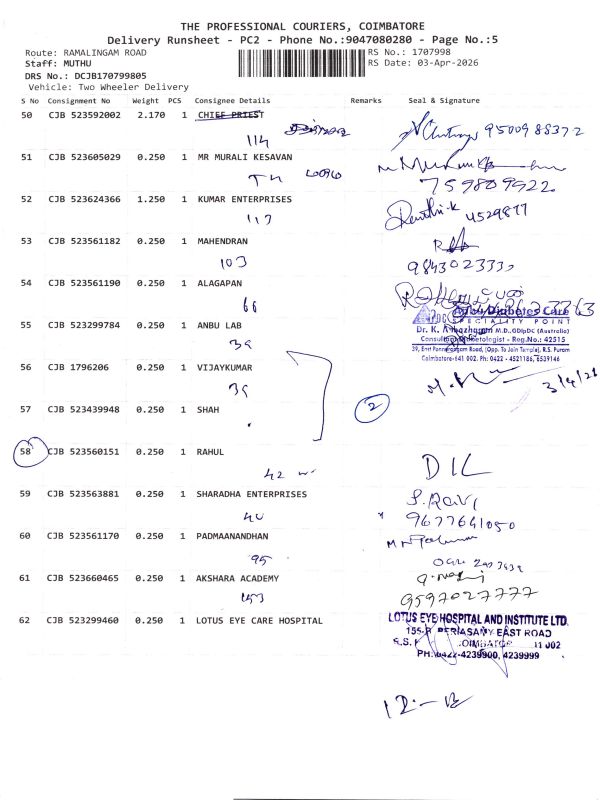 THE PROFESSIONAL COURIERS, COIMBATORE
Delivery Runsheet - PC2 - Phone No.:9047080280 - Page No.:5
Route: RAMALINGAM ROAD
RS No.: 1707998
Staff: MUTHU
RS Date: 03-Apr-2026
DRS No.: DCJB170799805
Vehicle: Two Wheeler Delivery
S No Consignment No Weight PCS Consignee Details Remarks Seal & Signature
50 CJB 523592002 2.170 1 CHIEF PRIEST
114
9500988372
51 CJB 523605029 0.250 1 MR MURALI KESAVAN
52 CJB 523624366 1.250 1 KUMAR ENTERPRISES
117
4529877
53 CJB 523561182 0.250 1 MAHENDRAN
103
54 CJB 523561190 0.250 1 ALAGAPAN
66
55 CJB 523299784 0.250 1 ANBU LAB
39
Diabetes Care
SPECIALITY POINT
M.D.,GDipDC (Australia)
Reg.No.: 42515
(Opp. To Jain Temple), R.S. Puram
Coimbatore-141 002. Ph: 0422 - 4521186, 6539146
56 CJB 1796206 0.250 1 VIJAYKUMAR
39
3/4/26
57 CJB 523439948 0.250 1 SHAH
2
58 CJB 523560151 0.250 1 RAHUL
42
DIL
59 CJB 523563881 0.250 1 SHARADHA ENTERPRISES
40
S.RAVI
9677641050
60 CJB 523561170 0.250 1 PADMAANANDHAN
95
61 CJB 523660465 0.250 1 AKSHARA ACADEMY
153
9597027777
62 CJB 523299460 0.250 1 LOTUS EYE CARE HOSPITAL
LOTUS EYE HOSPITAL AND INSTITUTE LTD.
PERIASAMY EAST ROAD
PH: 0422-4239900, 4239999